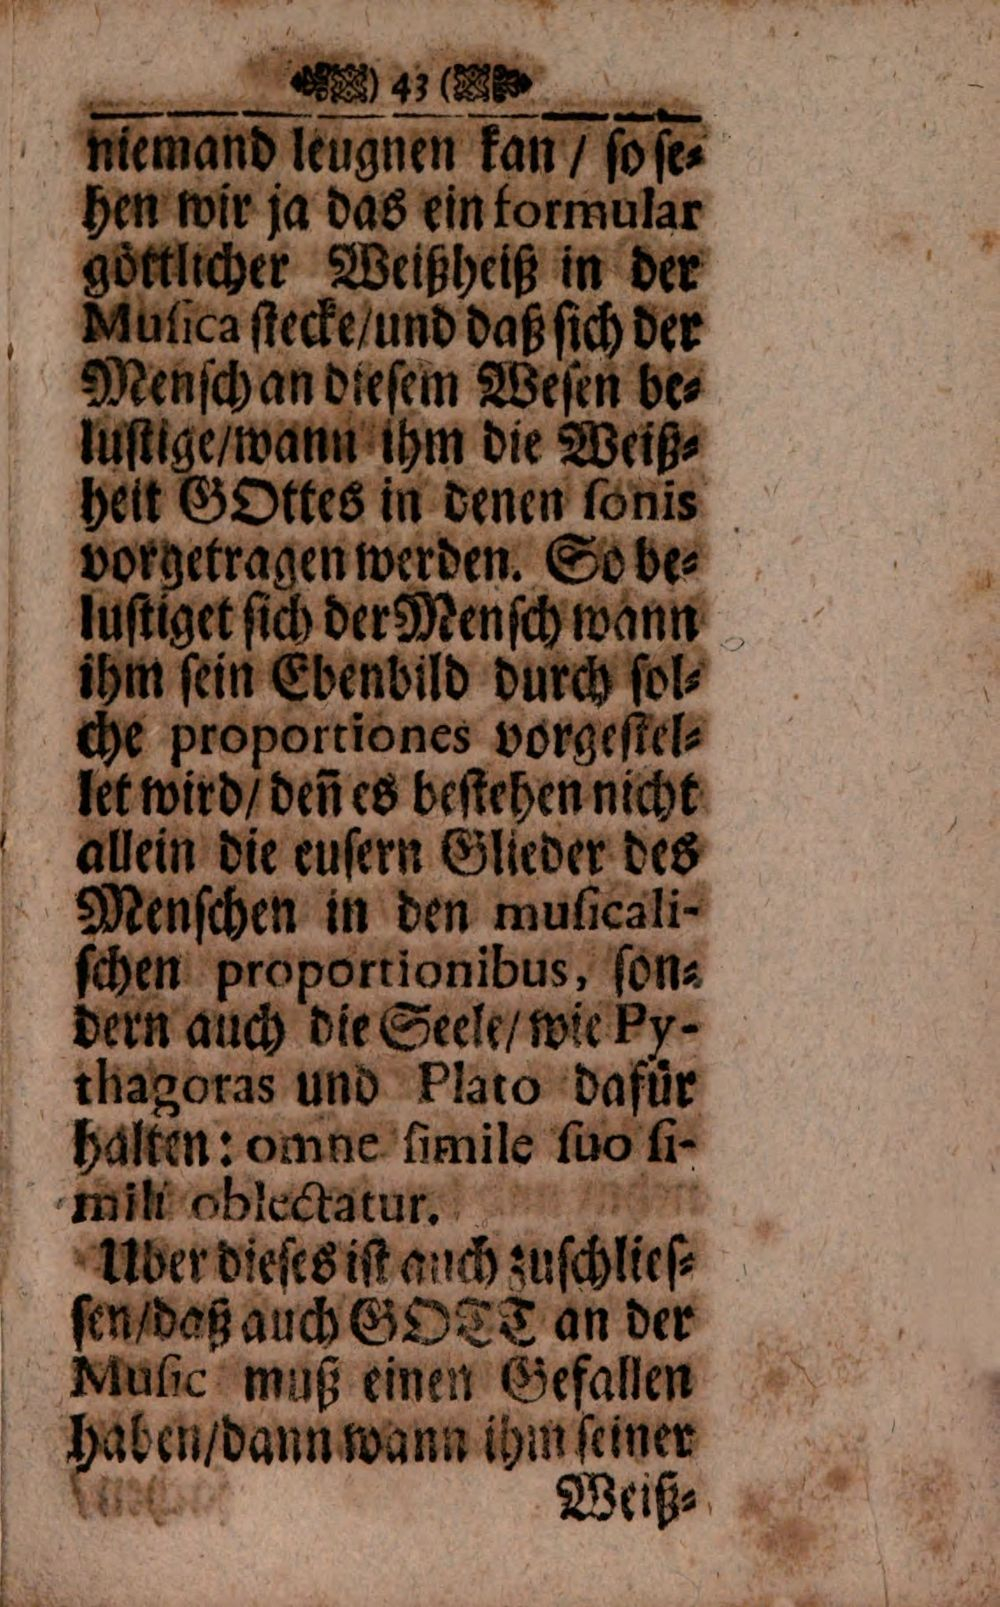 ) 43 (
niemand leugnen kan / so se⸗
hen wir ja das ein formular
göttlicher Weißheiß in der
Musica stecke/und daß sich der
Mensch an diesem Wesen be⸗
lustige/wann ihm die Weiß⸗
heit GOttes in denen sonis
vorgetragen werden. So be⸗
lustiget sich der Mensch wann
ihm sein Ebenbild durch sol⸗
che proportiones vorgestel⸗
let wird/ deñ es bestehen nicht
allein die eusern Glieder des
Menschen in den musicali-
schen proportionibus, son⸗
dern auch die Seele/ wie Py-
thagoras und Plato dafür
halten: omne simile suo si-
mili oblectatur.
Uber dieses ist auch zuschlies⸗
sen/daß auch GOTT an der
Music muß einen Gefallen
haben/dann wann ihm seiner
Weiß⸗